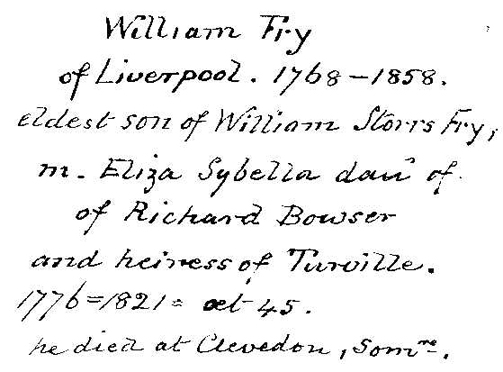 William Fry
of Liverpool. 1768–1858.
eldest son of William Storrs Fry,
m. Eliza Sybella dauʳ of.
of Richard Bowser
and heiress of Turville.
1776=1821= æt 45.
he died at Clevedon, Somᵐᵉ.